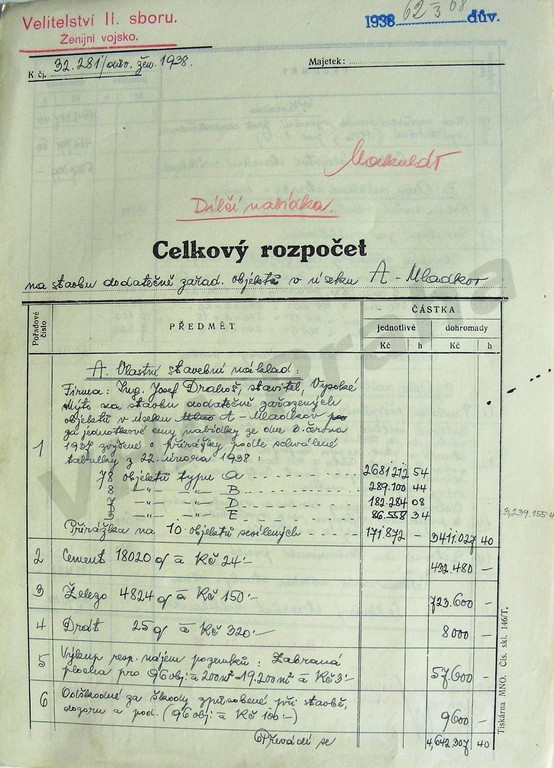 Velitelství II. sboru.
Ženijní vojsko.
1938 62/3 08 dův.
K čj. 32.281/ žen. 1938.
Majetek:
Dílčí nabídka.
Celkový rozpočet
na stavbu dodatečně zařad. objektů v úseku A - Mladkov
Pořadové číslo
PŘEDMĚT
ČÁSTKA
jednotlivě dohromady
Kč h Kč h
A. Vlastní stavební náklad:
Firma: Ing. Josef Drahoš, stavitel, Vysoké
Mýto na stavbu dodatečně zařazených
objektů v úseku A - Mladkov
za jednotkové ceny nabídky ze dne 8. června
1 1937 zvýšené o přirážky podle schválené
tabulky z 22. února 1938:
78 objektů typu A 2681212 54
8 -„- -„- B 289.100 44
7 -„- -„- D 182.284 08
3 -„- -„- E 86.558 34
3,239.155.4
Přirážka na 10 objektů zesílených 171.872 - 3411.027 40
2 Cement 18020 q à Kč 24·- 432.480 -
3 Železo 4824 q à Kč 150·- 723.600 -
4 Drát 25 q à Kč 320·- 8000 -
5 Výkup resp. nájem pozemků: Zabraná
plocha pro 96 obj. à 200 m² - 19.200 m² à Kč 3·- 57.600 -
6 Odškodné za škody způsobené při stavbě,
dozoru a pod. (96 obj. à Kč 100·-) 9600 -
Převádí se 4,642.307 40
Tiskárna MNO. Čís. skl. 146/T.